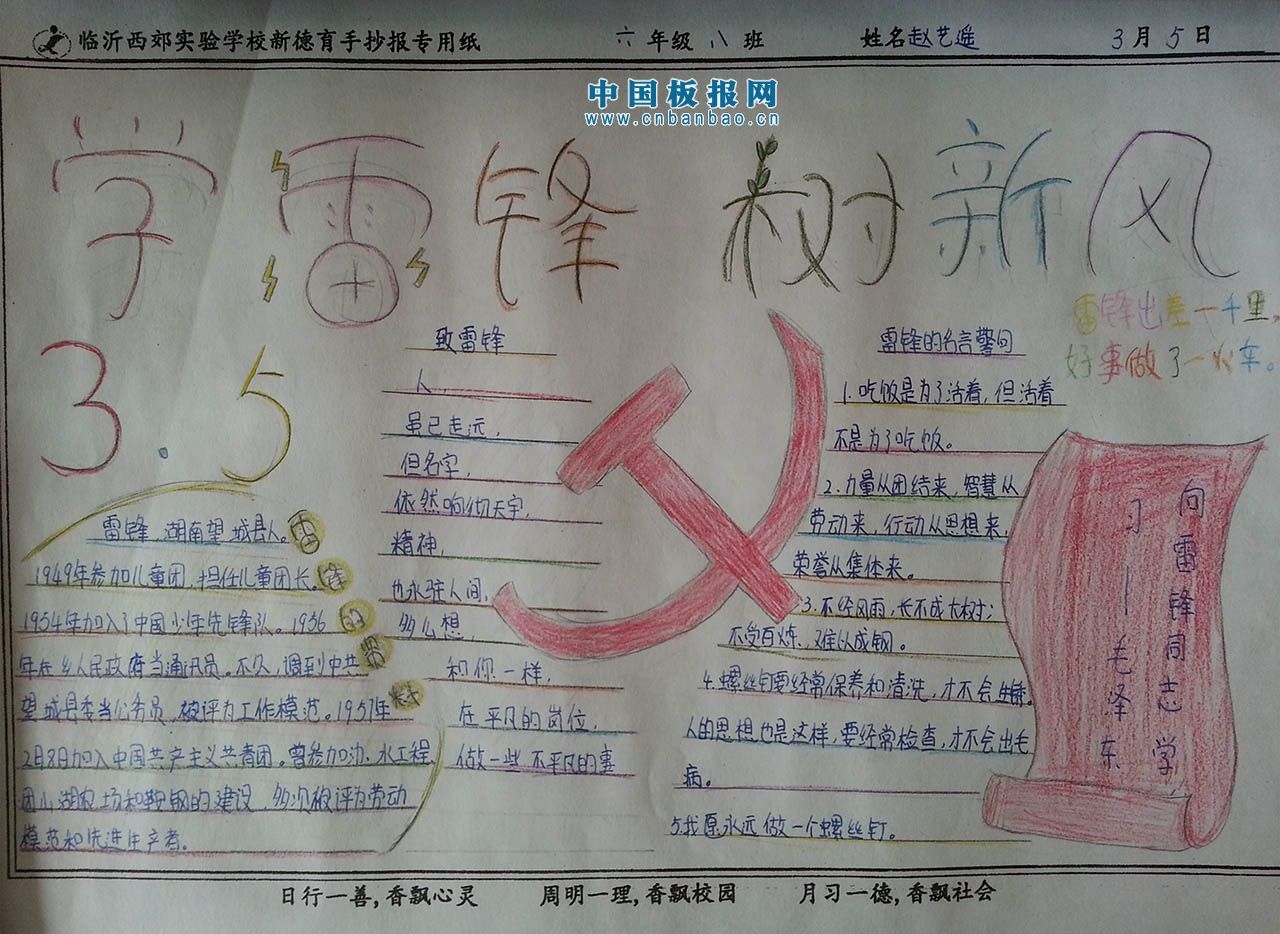 临沂西郊实验学校新德育手抄报专用纸
六年级八班
姓名赵艺遥
3月5日
中国板报网
www.cnbanbao.cn
学雷锋 树新风
3.5
雷锋,湖南望城县人。
1949年参加儿童团,担任儿童团长。
1954年加入了中国少年先锋队。1956
年在乡人民政府当通讯员。不久,调到中共
望城县委当公务员,被评为工作模范。1957年
2月8日加入中国共产主义共青团。曾参加沩水工程、
团山湖农场和鞍钢的建设,多次被评为劳动
模范和先进生产者。
雷
锋
的
致雷锋
人,
虽已走远,
但名字,
依然响彻天宇,
精神,
也永驻人间,
多么想,
和你一样,
在平凡的岗位,
做一些不平凡的事
雷锋的名言警句
1.吃饭是为了活着,但活着
不是为了吃饭。
2.力量从团结来,智慧从
劳动来,行动从思想来,
荣誉从集体来。
3.不经风雨,长不成大树;
不受百炼,难以成钢。
4.螺丝钉要经常保养和清洗,才不会生锈。
人的思想也是这样,要经常检查,才不会出毛
病。
5.我愿永远做一个螺丝钉。
雷锋出差一千里,
好事做了一火车。
向雷锋同志学
习——毛泽东
日行一善,香飘心灵
周明一理,香飘校园
月习一德,香飘社会